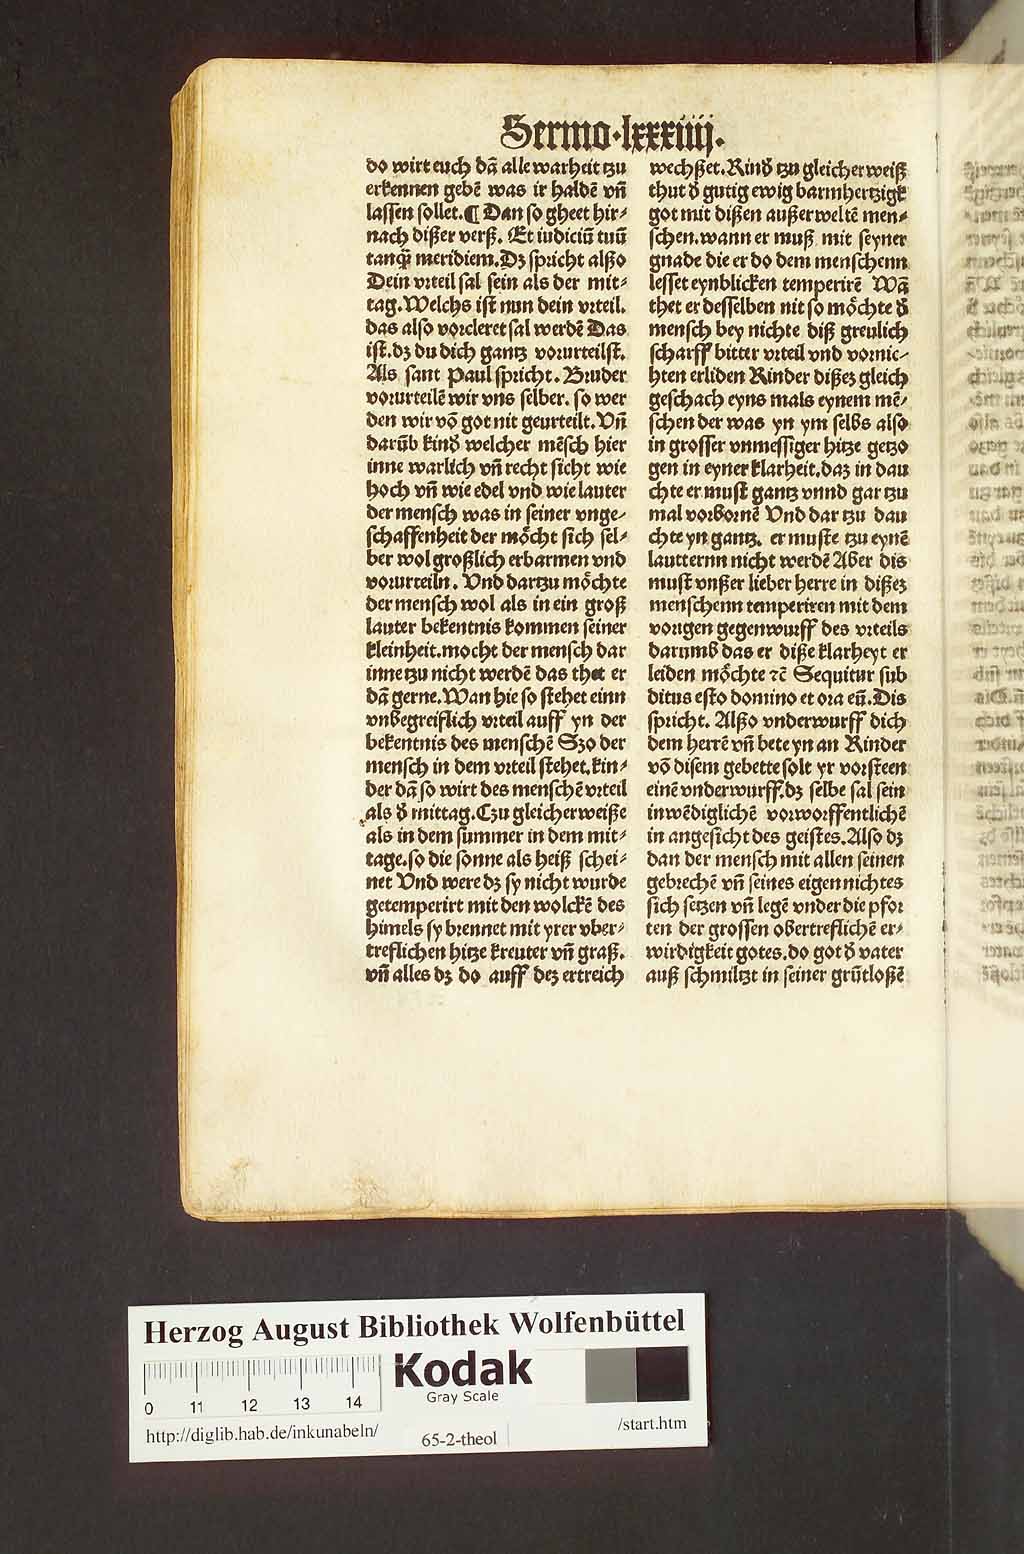 Sermo·lxxxiiij.
do wirt euch dā alle warheit tzu
erkennen gebē was ir haldē vñ
lassen sollet.¶ Dan so gheet hir⸗
nach dißer verß. Et iudiciū tuū
tanqȝ meridiem.Dz spricht alßo
Dein vrteil sal sein als der mit⸗
tag.Welchs ist nun dein vrteil.
das also vorcleret sal werdē Das
ist.dz du dich gantz vorurteilst.
Als sant Paul spricht. Bruder
vorurteilē wir vns selber. so wer
den wir vō got nit geurteilt. Vñ
darūb kinď welcher mēsch hier
inne warlich vñ recht sicht wie
hoch vñ wie edel vnd wie lauter
der mensch was in seiner vnge⸗
schaffenheit der möcht sich sel⸗
ber wol großlich erbarmen vnd
vorurteiln. Vnd dartzu möchte
der mensch wol als in ein groß
lauter bekentnis kommen seiner
kleinheit.mocht der mensch dar
inne tzu nicht werdē das thet er
dā gerne.Wan hie so stehet einn
vnbegreiflich vrteil auff yn der
bekentnis des menschē Szo der
mensch in dem vrteil stehet.kin⸗
der dā so wirt des menschē vrteil
als ď mittag.Czu gleicher weiße
als in dem summer in dem mit⸗
tage.so die sonne als heiß schei⸗
net Vnd were dz sy nicht wurde
getemperirt mit den wolckē des
himels sy brennet mit yrer vber⸗
treflichen hitze kreuter vñ graß.
vñ alles dz do auff dez ertreich
wechßet.Kinď tzu gleicher weiß
thut ď gutig ewig barmhertzigk
got mit dißen außerweltē men⸗
schen.wann er muß mit seyner
gnade die er do dem menschenn
lesset eynblicken temperirē Wā
thet er desselben nit so möchte ď
mensch bey nichte diß greulich
scharff bitter vrteil vnd vornic⸗
hten erliden Kinder dißez gleich
geschach eyns mals eynem mē⸗
schen der was yn ym selbs also
in grosser vnmessiger hitze getzo
gen in eyner klarheit.daz in dau
chte er must gantz vnnd gar tzu
mal vorbornē Vnd dar tzu dau
chte yn gantz. er muste tzu eynē
lautternn nicht werdē Aber dis
must vnßer lieber herre in dißez
menschenn temperiren mit dem
vorigen gegenwurff des vrteils
darumb das er diße klarheyt er
leiden möchte ⁊c̄ Sequitur sub
ditus esto domino et ora eū.Dis
spricht. Alßo vnderwurff dich
dem herrē vñ bete yn an Kinder
vō disem gebette solt yr vorsteen
einē vnderwurff.dz selbe sal sein
inwēdiglichē vorworffentlichē
in angesicht des geistes.Also dz
dan der mensch mit allen seinen
gebrechē vñ seines eigen nichtes
sich setzen vñ legē vnder die pfor
ten der grossen obertreflichē er⸗
wirdigkeit gotes.do got ď vater
auß schmiltzt in seiner grūtloßē
Herzog August Bibliothek Wolfenbüttel
Kodak
Gray Scale
0 11 12 13 14
http://diglib.hab.de/inkunabeln/
65-2-theol
/start.htm